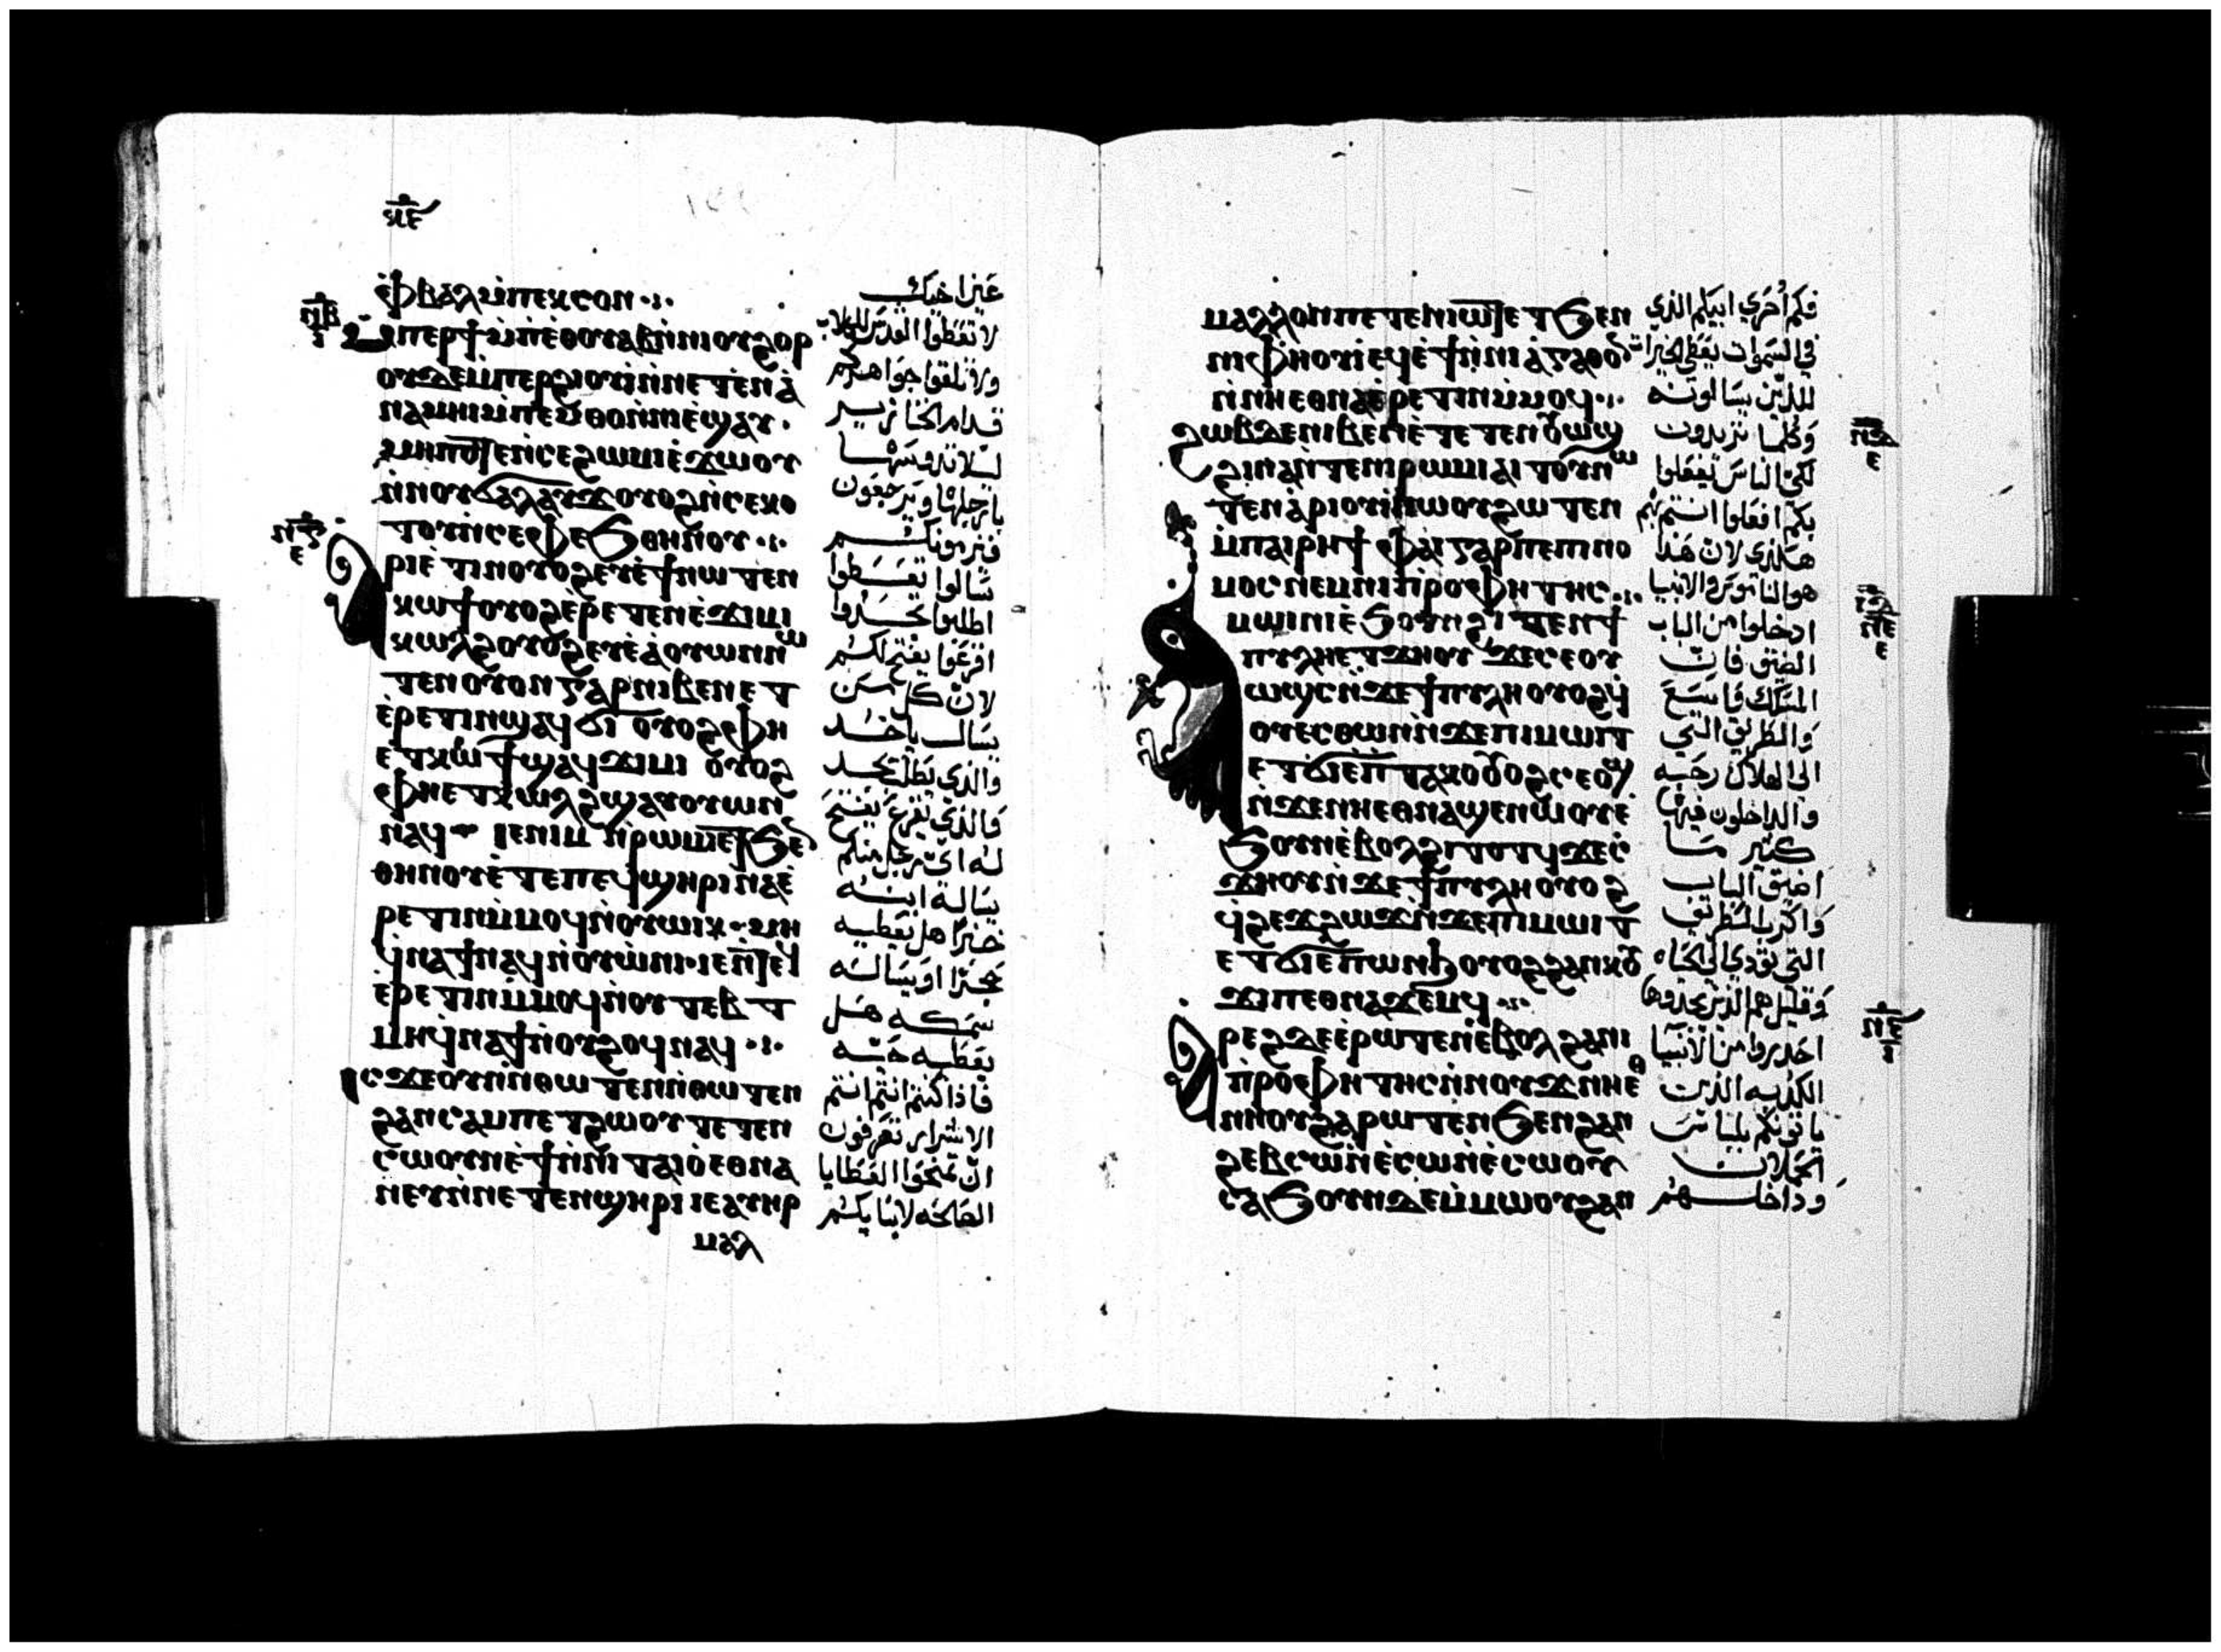 ⲉ̇ⲫⲃⲁⲗⲙ̇ⲡⲉⲕⲥⲟⲛ
ⲙ̇ⲡⲉⲣϯⲙ̇ⲡⲉ̇ⲑⲟⲩⲁⲃⲛ̇ⲛⲓⲟⲩϩⲟⲣ
ⲟⲩⲇⲉⲙ̇ⲡⲉⲣϩⲓⲟⲩⲓ̇ⲛ̇ⲛⲉⲧⲉⲛⲁ̇
ⲛⲁⲙⲏⲓⲙ̇ⲡⲉⲙ̇ⲑⲟⲛ̇ⲛⲓⲉ̇ϣⲁⲩ
ⲙⲏⲡⲟⲧⲉⲛ̇ⲥⲉϩⲱⲙⲓⲉ̇ϫⲱⲟⲩ
ⲛ̇ⲛⲟⲩϭⲁⲗⲁⲩϫⲟⲩⲟϩⲛ̇ⲥⲉⲕⲟ
ⲧⲟⲩⲛ̇ⲥⲉⲫⲉϧⲑⲏⲛⲟⲩ
ⲁⲣⲓⲉ̇ⲧⲓⲛⲟⲩⲟϩⲉⲩⲉ̇ϯⲛⲱⲧⲉⲛ
ⲕⲱϯⲟⲩⲟϩⲉ̇ⲣⲉⲧⲉⲛⲉ̇ϫⲓⲙⲓ
ⲕⲱⲗϩⲟⲩⲟϩⲉⲩⲉ̇ⲁ̇ⲟⲩⲱⲛⲛⲱ
ⲧⲉⲛⲟⲩⲟⲛⲅⲁⲣⲛⲓⲃⲉⲛⲉⲧ
ⲉ̇ⲣⲉⲧⲓⲛϣⲁϥϭⲓ ⲟⲩⲟϩⲫⲏ
ⲉⲧⲕⲱϯϣⲁϥϫⲓⲙⲓ ⲟⲩⲟϩ
ⲫⲏⲉⲧⲕⲱⲗϩϣⲁⲩⲟⲩⲱⲛ
ⲛⲁϥ ⲓⲉⲛⲓⲙ ⲛ̇ⲣⲱⲙⲓⲉⲧϧⲉⲛ
ⲑⲏⲛⲟⲩⲉ̇ⲧⲉⲡⲉϥϣⲏⲣⲓⲛⲁⲉ̇
ⲣⲉⲧⲓⲛⲙ̇ⲙⲟϥⲛ̇ⲟⲩⲱⲓⲕ ⲙⲏ
ϥ̇ⲛⲁϯⲛⲁϥⲛ̇ⲟⲩⲱ̇ⲛⲓ
ⲉ̇ⲣⲉⲧⲓⲛⲙ̇ⲙⲟϥⲛ̇ⲟⲩⲧⲉⲃⲧ
ⲙⲏϥ̇ⲛⲁϯⲛ̇ⲟⲩϩⲟϥⲛⲁϥ
ⲓⲥϫⲉⲟⲩⲛⲛ̇ⲑⲱⲧⲉⲛⲛ̇ⲑⲱⲧⲉⲛ
ϩⲁⲛⲥⲁⲙⲡⲉⲧϩⲱⲟⲩⲧⲉⲧⲉⲛ
ⲥⲱⲟⲩⲛⲉ̇ϯⲛ̇ⲛⲓⲧⲁⲓⲟⲉⲑⲛⲁ
ⲛⲉⲩⲛ̇ⲛⲉⲧⲉⲛϣⲏⲣⲓⲓⲉⲁⲩⲏⲣ
ⲙⲁⲗ
عين اخيك
لا تعطوا القدس للكلاب
ولا تلقوا جواهركم
قدام الخنازير
ليلا تدوسها
بارجلها ويرجعون
فيزمونكم
سالوا تعطوا
اطلبوا تجدوا
اقرعوا يفتح لكم
لان كل من
يسال ياخد
والذي يطلب يجد
والذي يقرع يفتح
له اي رجل منكم
يساله ابنه
خبزا هل يعطيه
حجرا او يساله
سمكه هل
يعطيه حيه
فاذا كنتم انتم
الاشرار تعرفون
ان تمنحوا العطايا
الصالحه لابنايكم
ⲙⲁⲗⲗⲟⲛⲡⲉⲧⲉⲛⲓⲱⲧⲉⲧϧⲉⲛ
ⲛⲓⲫⲏⲟⲩⲓ̇ⲉϥⲉ̇ϯⲛ̇ⲛⲓⲁ̇ⲅⲁⲑⲟⲛ
ⲛ̇ⲛⲏⲉⲑⲛⲁⲉ̇ⲣⲉⲧⲓⲛⲙ̇ⲙⲟϥ
ϩⲱⲃⲇⲉⲛⲓⲃⲉⲛⲉ̇ⲧⲉⲧⲉⲛⲟⲩⲱϣ
ϩⲓⲛⲁⲛ̇ⲧⲉⲛⲓⲣⲱⲙⲓⲁⲓⲧⲟⲩⲛⲱ
ⲧⲉⲛⲁ̇ⲣⲓⲟⲩⲓ̇ⲛⲱⲟⲩϩⲱⲧⲉⲛ
ⲙ̇ⲡⲁⲓⲣⲏϯ ⲫⲁⲓⲅⲁⲣⲡⲉⲡⲓⲛⲟ
ⲙⲟⲥⲛⲉⲙⲛⲓⲡ̇ⲣⲟⲫⲏⲧⲏⲥ
ⲙⲱⲓⲛⲓⲉ̇ϧⲟⲩⲛϩⲓⲧⲉⲛϯ
ⲡⲩⲗⲏⲉⲧϫⲏⲟⲩ ϫⲉⲥⲉⲟⲩ
ⲱϣⲥⲛ̇ϫⲉϯⲡⲩⲗⲏⲟⲩⲟϩϥ̇
ⲟⲩⲉⲥⲑⲱⲛⲛ̇ϫⲉⲡⲓⲙⲱⲓⲧ
ⲉⲧϭⲓⲉ̇ⲡ̇ⲧⲁⲕⲟⲟⲩⲟϩⲥⲉⲟϣ
ⲛ̇ϫⲉⲛⲏⲉⲑⲛⲁϣⲉⲛⲱⲟⲩⲉ̇
ϧⲟⲩⲛⲉ̇ⲃⲟⲗϩⲓⲧⲟⲧϥϫⲉⲥ̇
ϫⲏⲟⲩⲛ̇ϫⲉϯⲡⲩⲗⲏⲟⲩⲟϩ
ϥ̇ϩⲉϫϩⲱϫⲛ̇ϫⲉⲡⲓⲙⲱⲓⲧ
ⲉⲧϭⲓⲉⲡⲱⲛϧⲟⲩⲟϩϩⲁⲛⲕⲟⲩ
ϫⲓⲡⲉⲑⲛⲁϫⲉⲙϥ
ⲁⲣⲉϩⲇⲉⲉ̇ⲣⲱⲧⲉⲛⲉ̇ⲃⲟⲗϩⲁⲛⲓ
ⲡ̇ⲣⲟⲫⲏⲧⲏⲥⲛ̇ⲛⲟⲩϫⲛⲏⲉⲑ
ⲛⲏⲟⲩϩⲁⲣⲱⲧⲉⲛϧⲉⲛϩⲁⲛ
ϩⲉⲃⲥⲱⲛ̇ⲉ̇ⲥⲱⲛ̇ⲉ̇ⲥⲱⲟⲩ
ⲥⲁϧⲟⲩⲛⲇⲉⲙ̇ⲙⲱⲟⲩϩⲁⲛ
فكم احري ابيكم الذي
في السموات يعطي الخيرات
للذين يسالونه
وكلما تريدون
لكي الناس تفعلوا
بكم افعلوا انتم بهم
هكذي لان هذا
هو الناموس والانبيا
ادخلوا من الباب
الضيق فان
المسلك واسع
والطريق التي
الي الهلاك رحبه
والداخلون فيها
كثير ما
اضيق الباب
واكرب الطريق
التي تودي الي الحياه
وقليل هم الذين يجدوها
احدروا من الانبيا
الكذبه الذين
ياتونكم بلباس
الحملان
وداخلهم